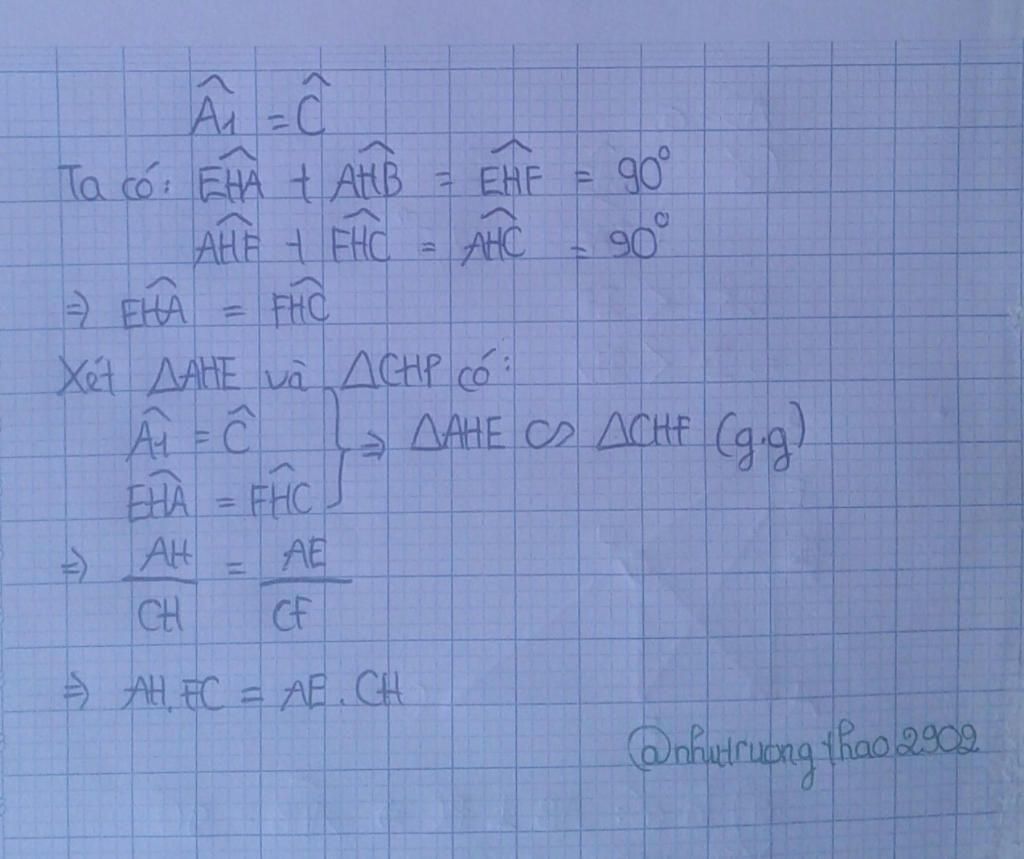 Â₁ = Ĉ
Ta có: EĤA + AĤB = EĤF = 90°
AĤF + FĤC = AĤC = 90°
⇒ EĤA = FĤC
Xét △AHE và △CHP có:
Â₁ = Ĉ
EĤA = FĤC } ⇒ △AHE ∽ △CHF (g.g)
⇒ AH/CH = AE/CF
⇒ AH.FC = AE.CH
@nhutruongthao2902